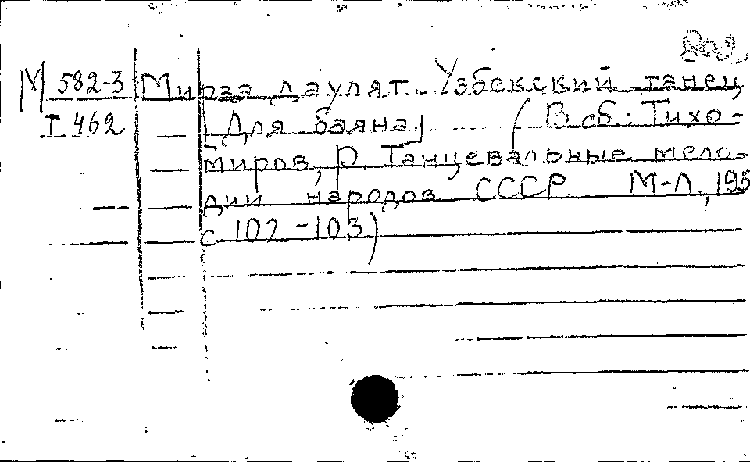 М 582-3 Мирза даулят. Узбекский танец
Т 462 [Для баяна] (В сб: Тихо-
миров, Р. Танцевальные мело-
дии народов СССР М-Л, 195
с 102-103)